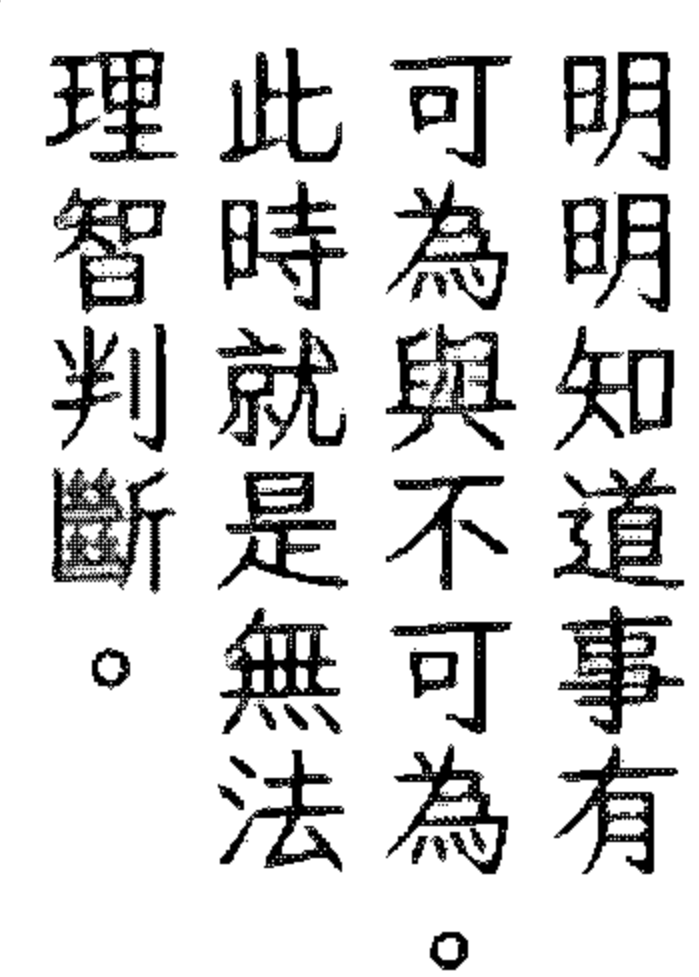 明明知道事有
可為與不可為。
此時就是無法
理智判斷。